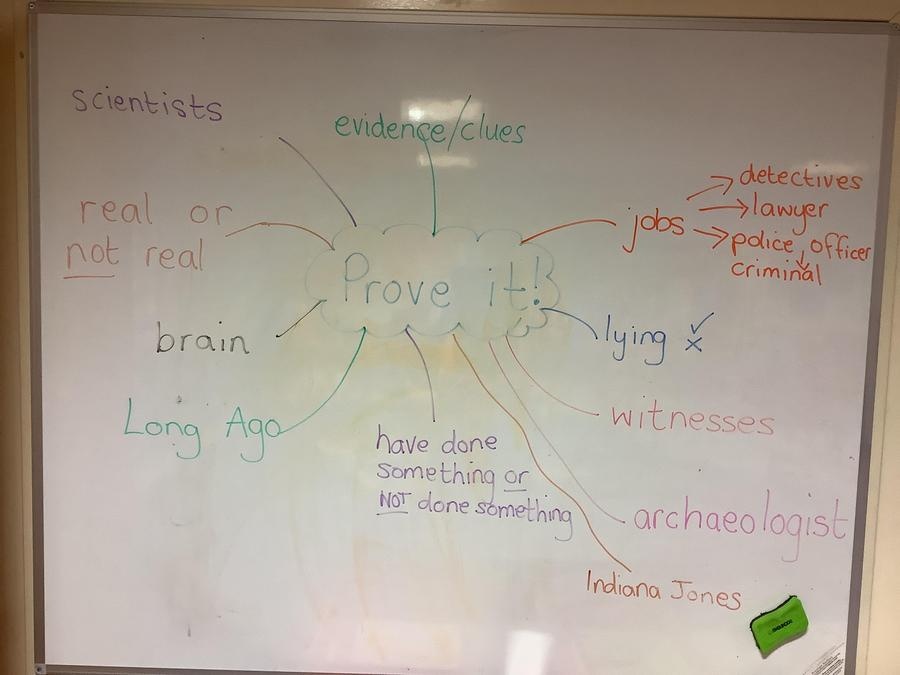 scientists
evidence/clues
real or
not real
Prove it!
jobs
detectives
lawyer
police officer
criminal
brain
lying ✓
x
Long Ago
have done
something or
NOT done something
witnesses
archaeologist
Indiana Jones